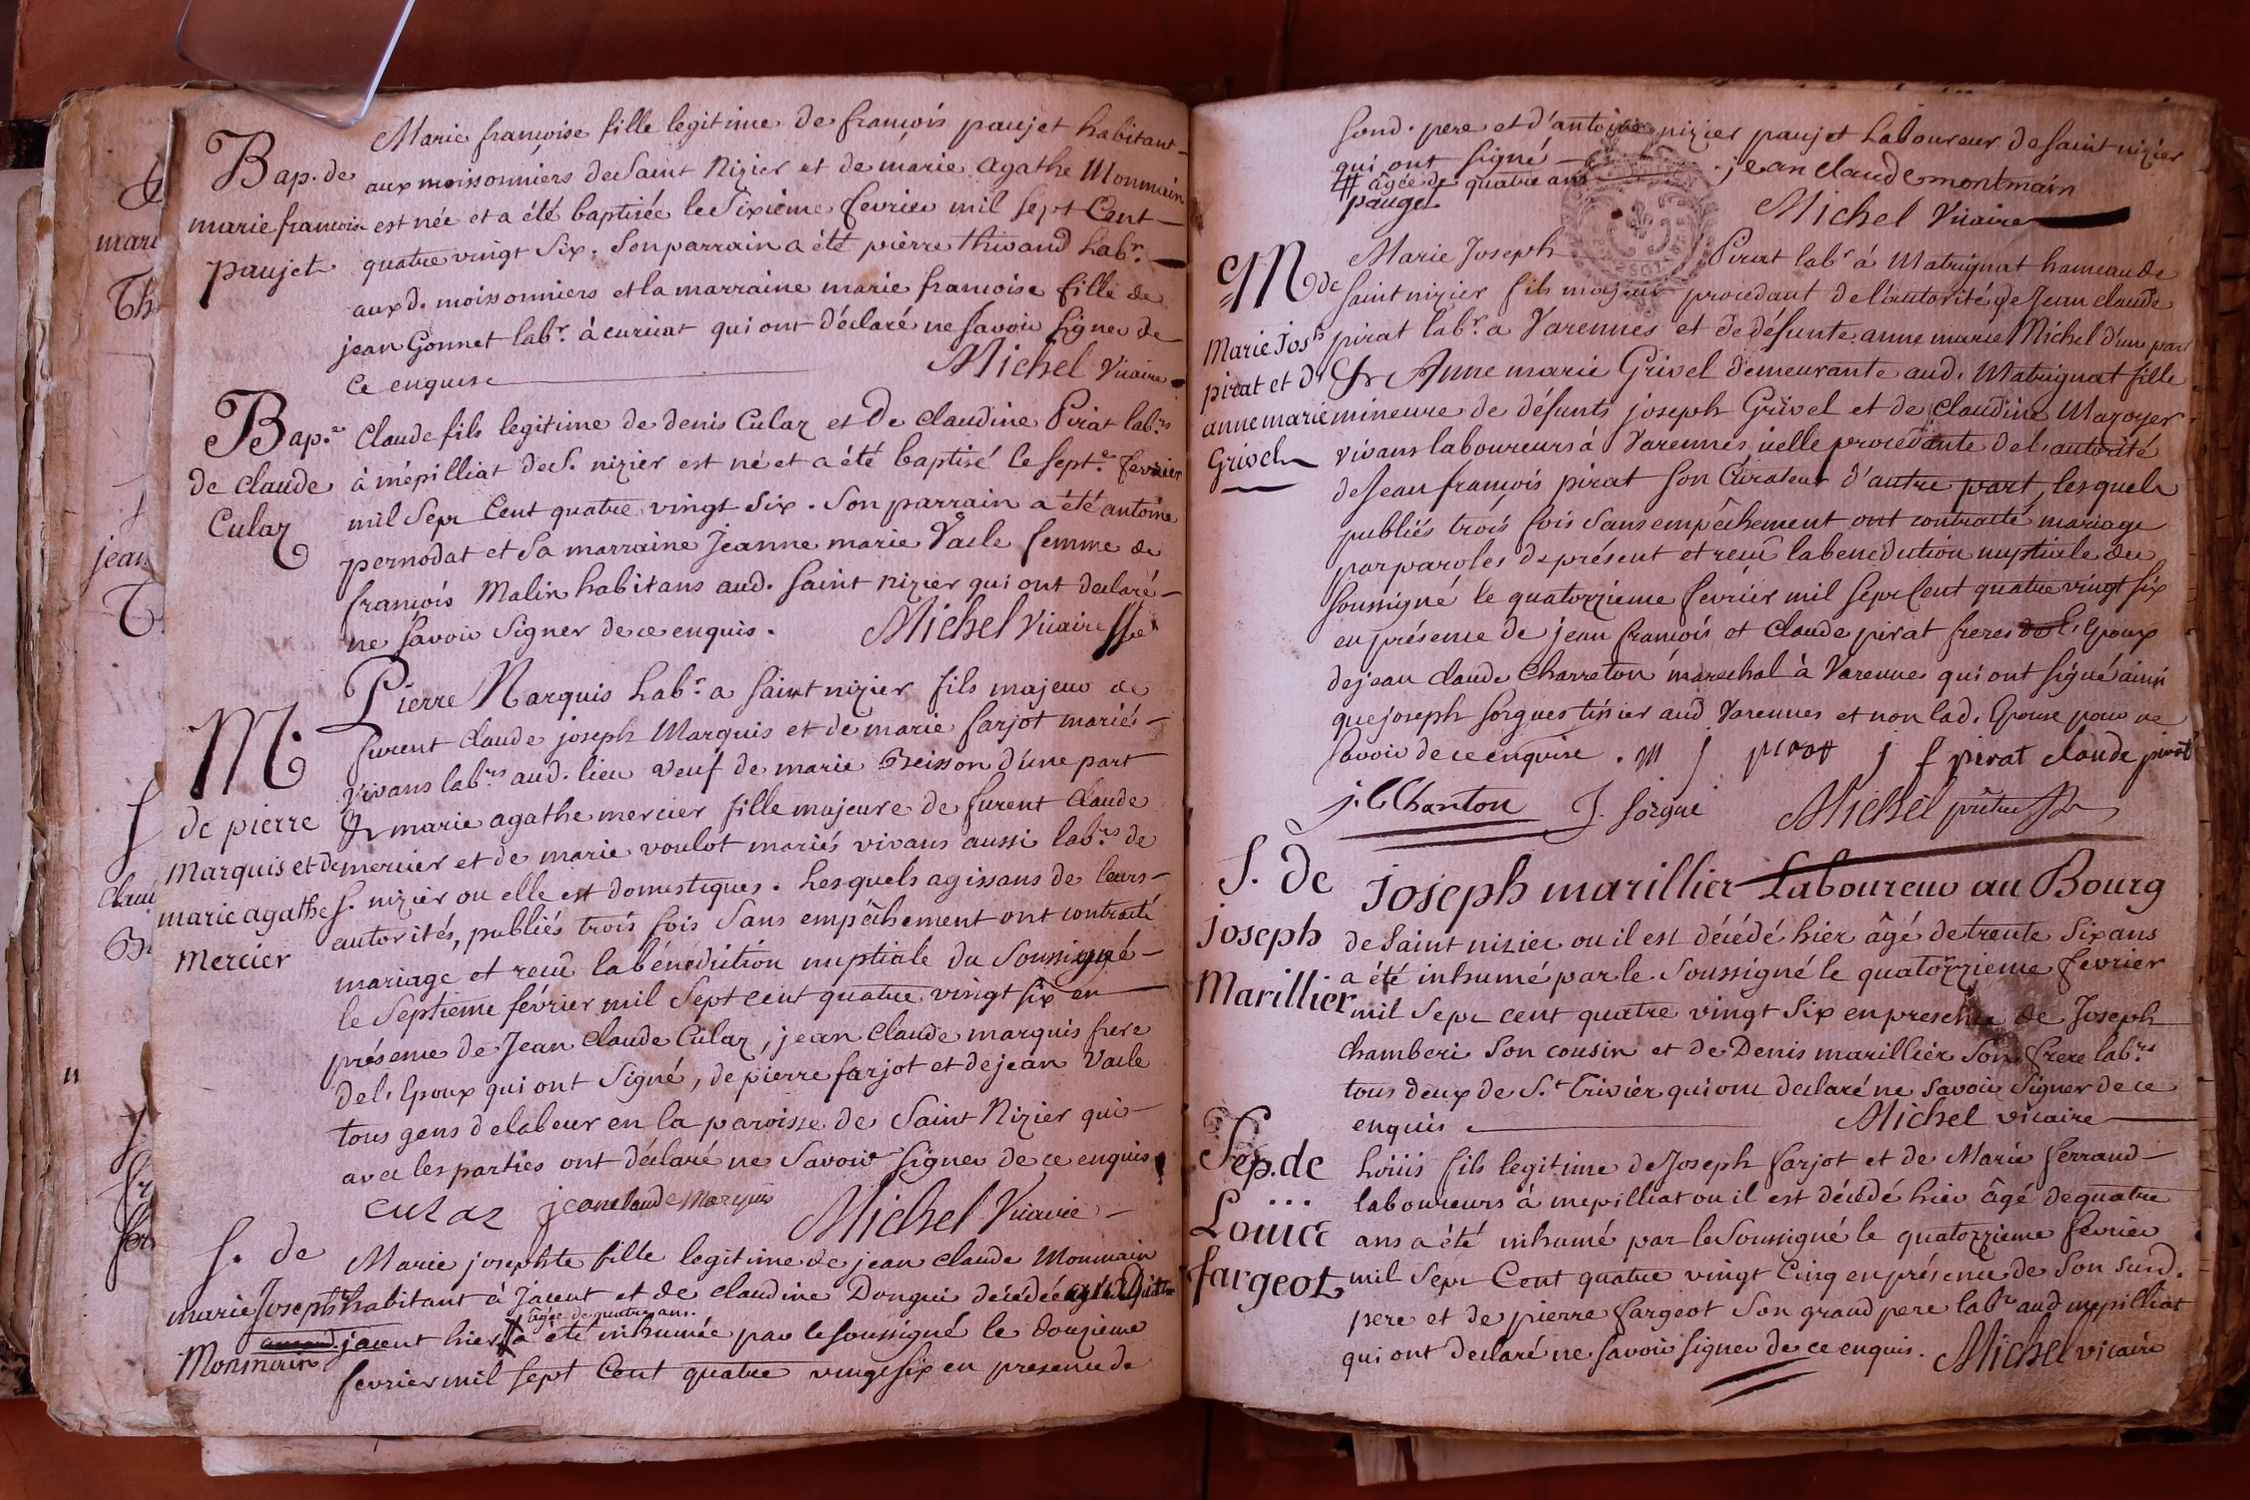 Bap. de
marie francoise
paujet
Marie françoise fille legitime de françois paujet habitant
aux moissonniers de Saint Nizier et de marie agathe Monmain
est née et a été baptisée le Sixième fevrier mil sept Cent
quatre vingt Six. Son parrain a été pierre thivaud labr.
aux d. moissonniers et la marraine marie francoise fille de
jean Gonnet labr. à curciat qui ont déclaré ne savoir signer de
ce enquis
Michel Vicaire
Bap.e
de claude
Culaz
Claude fils legitime de denis Culaz et De claudine Pirat labrs
à mépilliat de S. nizier est né et a été baptisé le sept.e fevrier
mil Sept Cent quatre vingt Six. Son parrain a été antoine
pernodat et Sa marraine Jeanne marie Vaile femme de
françois Malin habitans aud. Saint nizier qui ont declaré
ne savoir Signer de ce enquis.
Michel Vicaire
M.
de pierre
Marquis et de
marie agathe
Mercier
Pierre Marquis labr. a saint nizier fils majeur de
furent claude joseph Marquis et de marie farjot mariés
vivans labrs aud. lieu veuf de marie Beisson d'une part
Et marie agathe mercier fille majeure de furent claude
mercier et de marie voulot mariés vivans aussi labrs de
S. nizier ou elle est domestiques. Lesquels agissans de leurs
autorités, publiés trois fois Sans empêchement ont contracté
mariage et reçu la bénédiction nuptiale du Soussigné
le Septieme février mil Sept cent quatre vingt six en
présence de Jean Claude Culaz, jean claude marquis frere
de l'Epoux qui ont Signé, de pierre farjot et de jean Vaile
tous gens de labeur en la paroisse de Saint Nizier qui
avec les parties ont déclaré ne Savoir signer de ce enquis
culaz jean claude marquis Michel Vicaire
S. de
marie Joseph.te
Monmain
Marie josephte fille legitime de jean claude Monmain
habitant à Jacent et de claudine Dongui décédée
âgée de quatre ans.
jacent hier a été inhumée par le soussigné le douzieme
fevrier mil sept Cent quatre vingt six en presence de
sond. pere et d'antoine nizier paujet laboureur de saint nizier
qui ont signé jean claude montmain
# âgée de quatre ans
pauget
Michel Vicaire
M de
Marie Josh
pirat et de
anne marie
Grivel
Marie Joseph Pirat labr à Matrignat hameau de
saint nizier fils majeur procedant de l'autorité de Jean claude
pirat labr. a Varennes et de défunte anne marie Michel d'une part
Et Anne marie Grivel demeurante aud. Matrignat fille
mineure de défunts joseph Grivel et de claudine Mazoyer
vivans laboureurs à Varennes, icelle procedante de l'autorité
de Jean françois pirat son Curateur d'autre part, lesquels
publiés trois fois Sans empêchement ont contracté mariage
par paroles de présent et reçu la benediction nuptiale du
Soussigné le quatorzieme fevrier mil Sept Cent quatre vingt six
en présence de jean françois et claude pirat freres de l'Epoux
de jean claude Charreton marechal à Varennes qui ont signé ainsi
que joseph sorgues tissier aud Varennes et non lad. Epouse pour ne
savoir de ce enquise. m j pirat j f pirat claude pirat
j. C Charton J. sorgue Michel prêtre
S. de
joseph
Marillier
joseph marillier Laboureur au Bourg
de Saint nizier ou il est décédé hier âgé de trente Six ans
a été inhumé par le Soussigné le quatorzieme fevrier
mil Sept cent quatre vingt Six en presence de Joseph
chamberi Son cousin et de Denis marillier Son frere labrs
tous deux de St Trivier qui ont declaré ne savoir Signer de ce
enquis Michel vicaire
Sep. de
Louice
fargeot
Loüis fils legitime de Joseph farjot et de Marie ferraud
laboureurs à mepilliat ou il est décédé hier âgé de quatre
ans a été inhumé par le Soussigné le quatorzieme fevrier
mil Sept Cent quatre vingt Cinq en présence de Son susd.
pere et de pierre fargeot Son grand pere labr aud mepilliat
qui ont declaré ne savoir signer de ce enquis. Michel vicaire